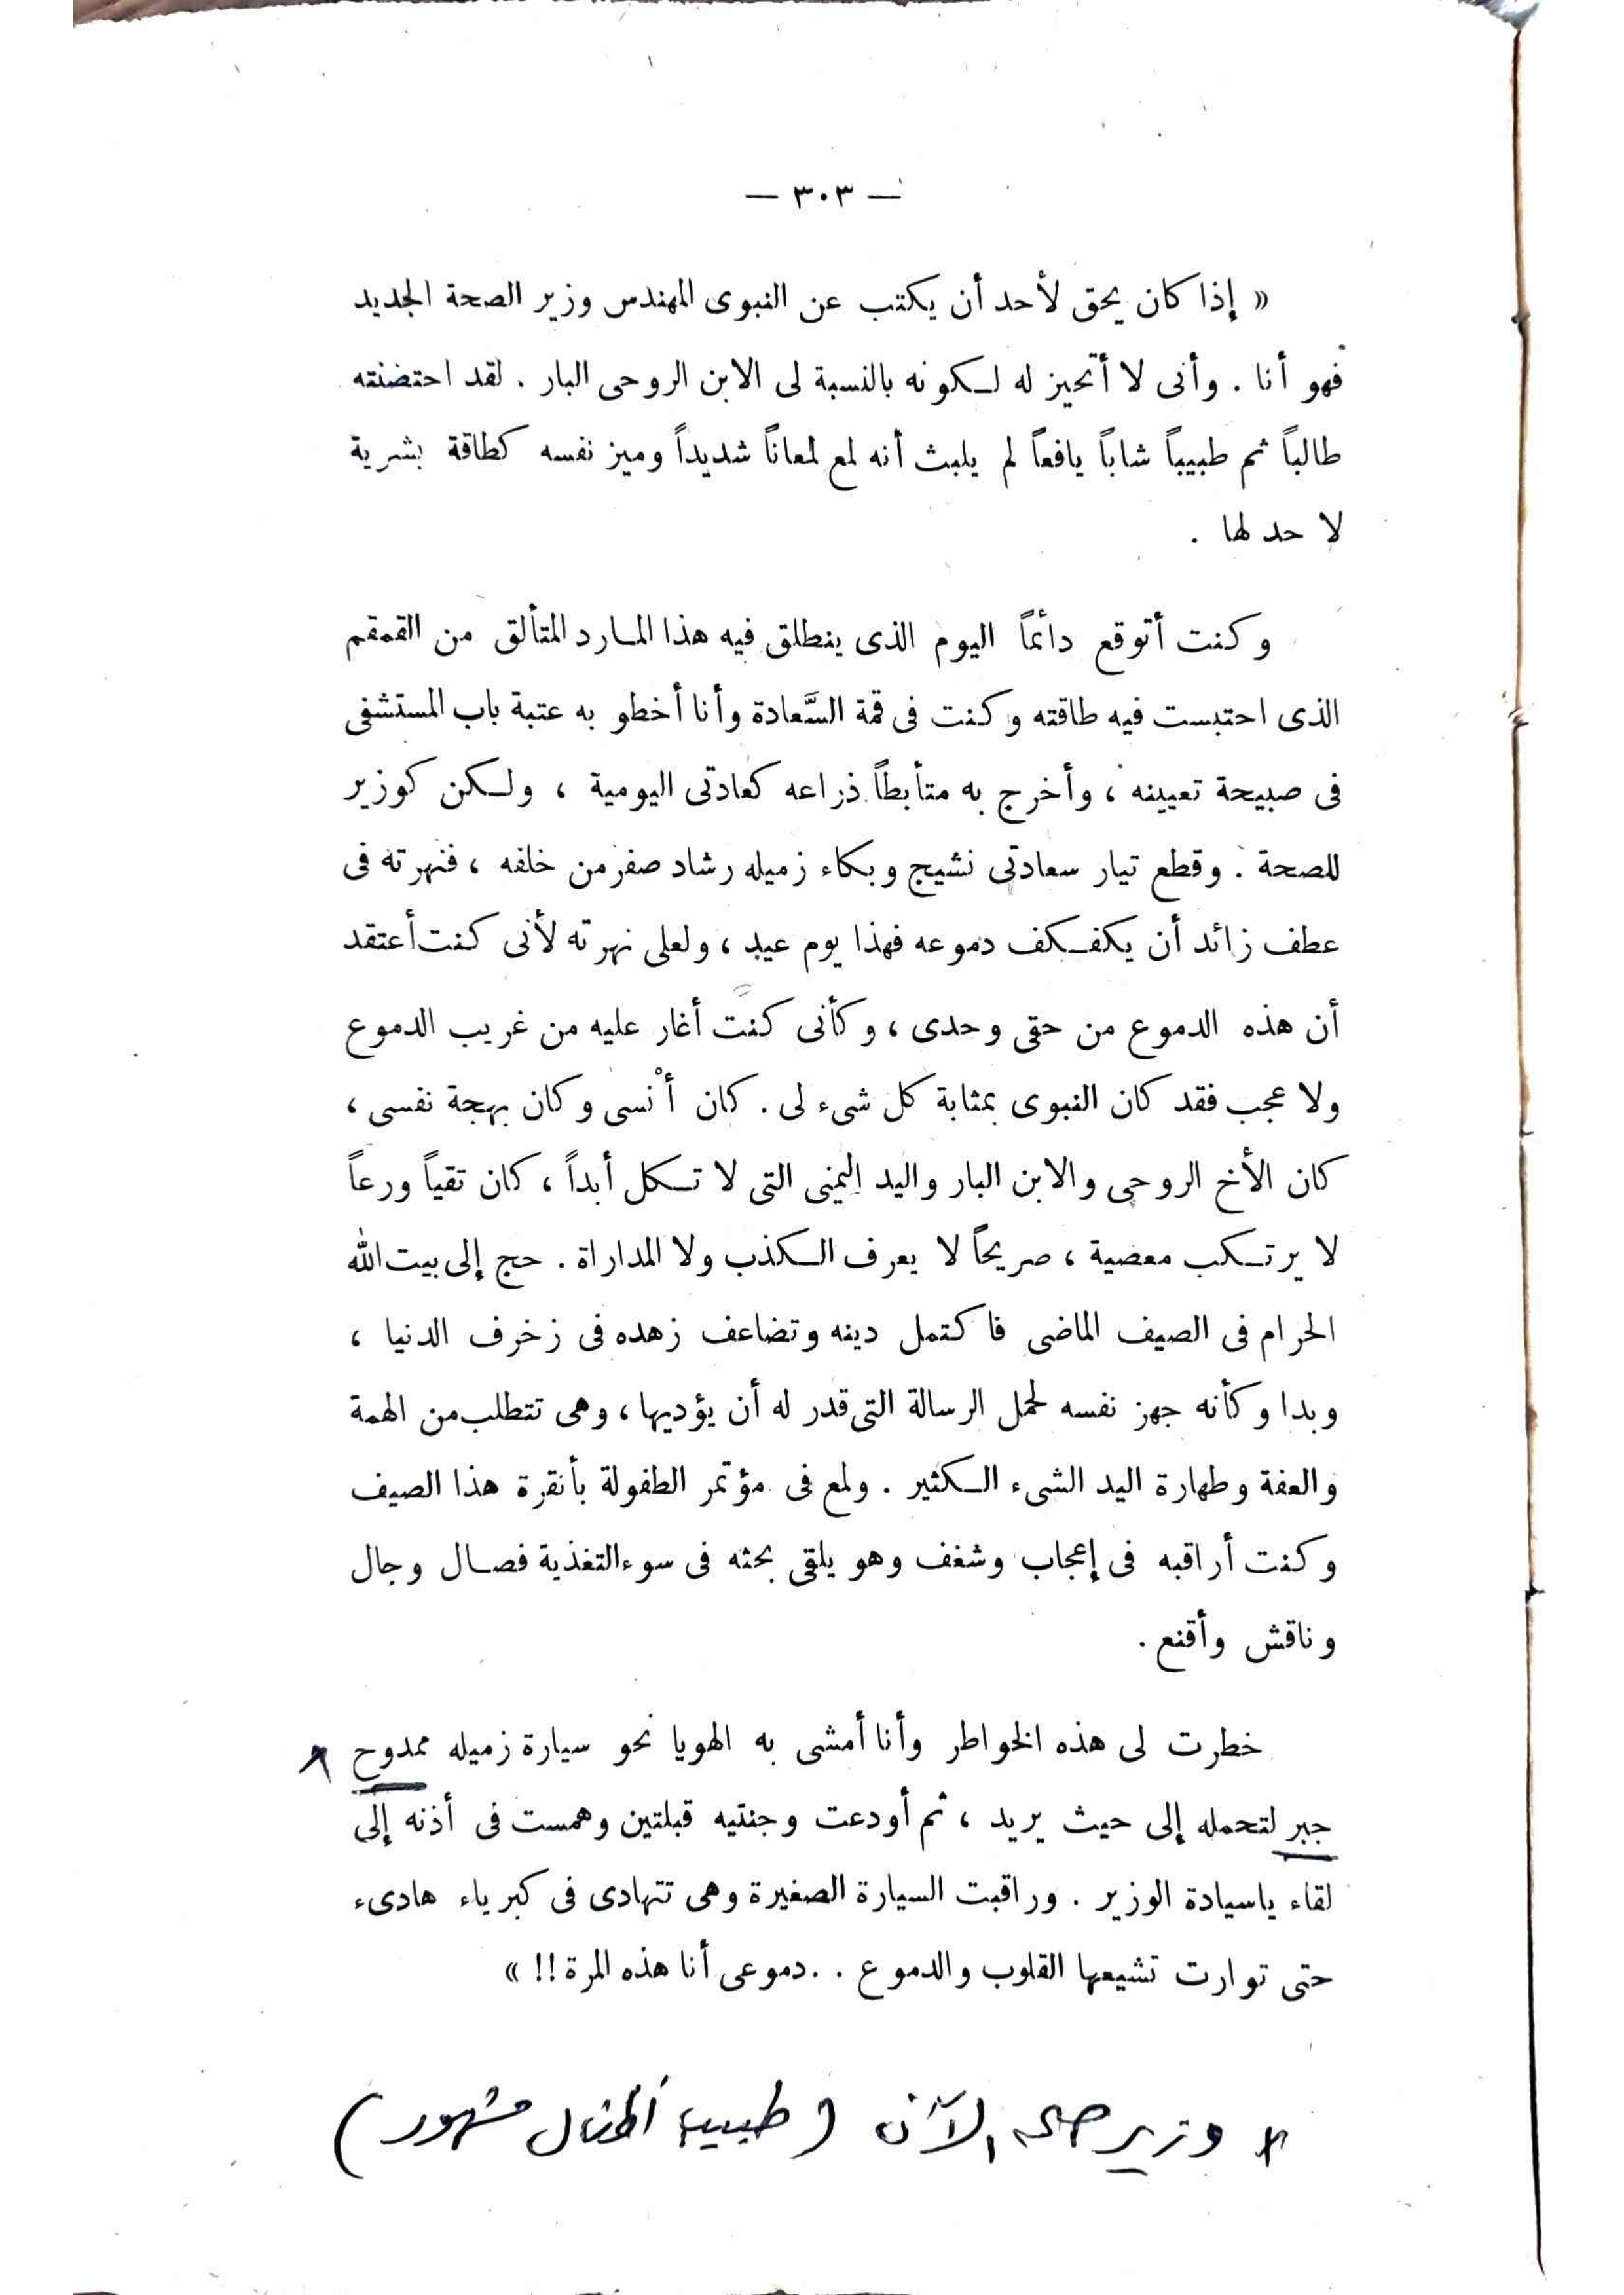 — ٣٠٣ —
« إذا كان يحق لأحد أن يكتب عن النبوى المهندس وزير الصحة الجديد
فهو أنا . وأنى لا أتحيز له لكونه بالنسبة لى الابن الروحى البار . لقد احتضنته
طالباً ثم طبيباً شاباً يافعاً لم يلبث أنه لمع لمعاناً شديداً وميز نفسه كطاقة بشرية
لا حد لها .
وكنت أتوقع دائماً اليوم الذى ينطلق فيه هذا المارد المتألق من القمقم
الذى احتبست فيه طاقته وكنت فى قمة السَّعادة وأنا أخطو به عتبة باب المستشفى
فى صبيحة تعيينه ، وأخرج به متأبطاً ذراعه كعادتى اليومية ، ولكن كوزير
للصحة . وقطع تيار سعادتى نشيج وبكاء زميله رشاد صفر من خلفه ، فنهرته فى
عطف زائد أن يكفكف دموعه فهذا يوم عيد ، ولعلى نهرته لأنى كنت أعتقد
أن هذه الدموع من حقى وحدى ، وكأنى كنت أغار عليه من غريب الدموع
ولا عجب فقد كان النبوى بمثابة كل شىء لى . كان أنْسى وكان بهجة نفسى ،
كان الأخ الروحى والابن البار واليد اليمنى التى لا تكل أبداً ، كان تقياً ورعاً
لا يرتكب معصية ، صريحاً لا يعرف الكذب ولا المداراة . حج إلى بيت الله
الحرام فى الصيف الماضى فاكتمل دينه وتضاعف زهده فى زخرف الدنيا ،
وبدا وكأنه جهز نفسه لحمل الرسالة التى قدر له أن يؤديها ، وهى تتطلب من الهمة
والعفة وطهارة اليد الشىء الكثير . ولمع فى مؤتمر الطفولة بأنقرة هذا الصيف
وكنت أراقبه فى إعجاب وشغف وهو يلقى بحثه فى سوء التغذية فصال وجال
وناقش وأقنع .
خطرت لى هذه الخواطر وأنا أمشى به الهوينا نحو سيارة زميله ممدوح
جبر لتحمله إلى حيث يريد ، ثم أودعت وجنتيه قبلتين وهمست فى أذنه إلى
لقاء ياسيادة الوزير . وراقبت السيارة الصغيرة وهى تتهادى فى كبرياء هادىء
حتى توارت تشيعها القلوب والدموع . . دموعى أنا هذه المرة !! »
* وزير صحة الآن ( طبيب أطفال مشهور )